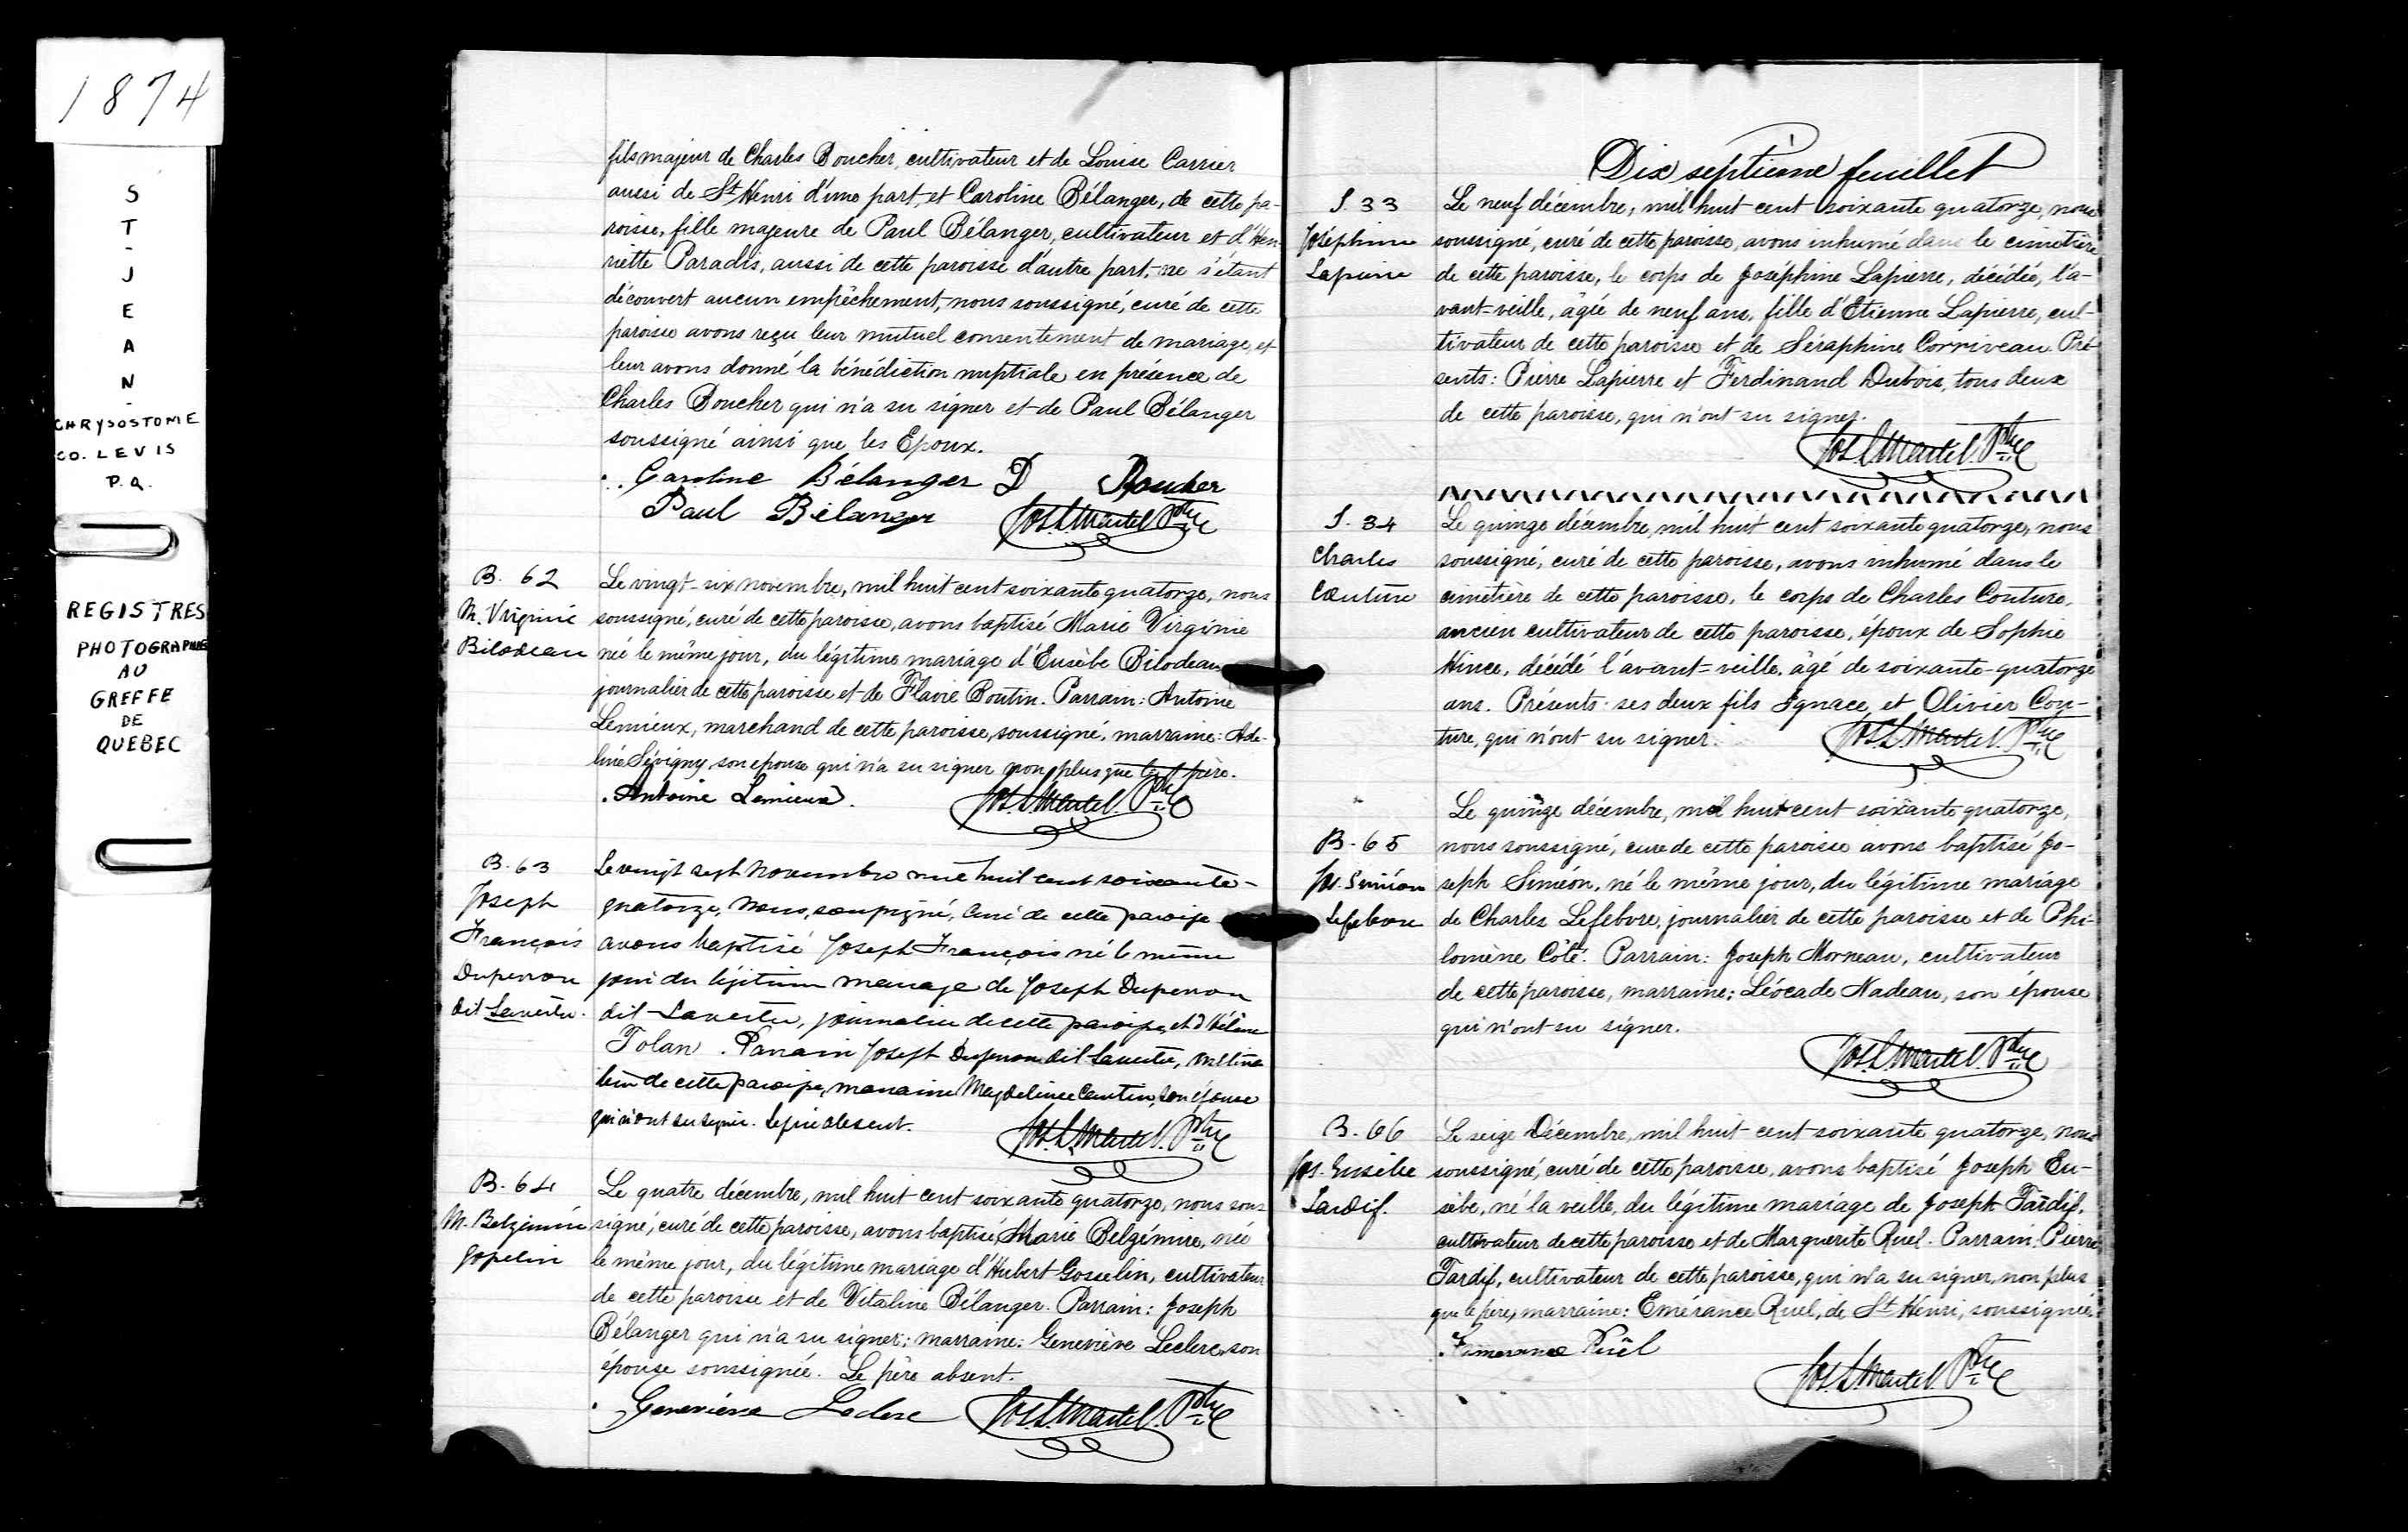 1874
S
T
-
J
E
A
N
-
CHRYSOSTOME
CO. LEVIS
P.Q.
REGISTRES
PHOTOGRAPHIES
AU
GREFFE
DE
QUEBEC
fils majeur de Charles Boucher, cultivateur et de Louise Carrier
aussi de St Henri d'une part, et Caroline Bélanger, de cette pa-
roisse, fille majeure de Paul Bélanger, cultivateur et d'Hen-
riette Paradis, aussi de cette paroisse d'autre part, ne s'étant
découvert aucun empêchement, nous soussigné, curé de cette
paroisse avons reçu leur mutuel consentement de mariage, et
leur avons donné la bénédiction nuptiale en présence de
Charles Boucher qui n'a su signer et de Paul Bélanger
soussigné ainsi que les Epoux.
Caroline Bélanger D Boucher
Paul Bélanger Jos. S. Martel Ptre
B. 62
M. Virginie
Bilodeau
Le vingt-six novembre, mil huit cent soixante quatorze, nous
soussigné, curé de cette paroisse, avons baptisé Marie Virginie
née le même jour, du légitime mariage d'Eusèbe Bilodeau
journalier de cette paroisse et de Flavie Boutin. Parrain: Antoine
Lemieux, marchand de cette paroisse, soussigné, marraine: Ade-
line Sévigny son epouse qui n'a su signer non plus que le père.
Antoine Lemieux. Jos. S. Martel. Ptre
B. 63
Joseph
François
Duperron
dit Lavertu.
Le vingt sept Novembre mil huit cent soixante-
quatorze, Nous, soussigné, Curé de cette paroisse
avons baptisé Joseph François né le même
jour du légitime mariage de Joseph Duperron
dit Lavertu, journalier de cette paroisse, et d'Hélène
Tolan. Parrain Joseph Duperron dit Lavertu,
de cette paroisse, marraine Magdeleine Cantin, son épouse
qui n'ont su signer. Le père absent.
Jos. S. Martel. Ptre
B. 64
M. Belzémire
Gosselin
Le quatre décembre, mil huit cent soixante quatorze, nous sous-
signé, curé de cette paroisse, avons baptisé, Marie Belzémire, née
le même jour, du légitime mariage d'Hubert Gosselin, cultivateur
de cette paroisse et de Vitaline Bélanger. Parrain: Joseph
Bélanger qui n'a su signer; marraine: Geneviève Leclerc, son
épouse soussignée. Le père absent.
Geneviève Leclerc Jos. S. Martel. Ptre
Dix septième feuillet
S. 33
Joséphine
Lapierre
Le neuf décembre, mil huit cent soixante quatorze, nous
soussigné, curé de cette paroisse, avons inhumé dans le cimetière
de cette paroisse, le corps de Joséphine Lapierre, décédée, l'a-
vant-veille, âgée de neuf ans, fille d'Etienne Lapierre, cul-
tivateur de cette paroisse et de Séraphine Corriveau. Pré-
sents: Pierre Lapierre et Ferdinand Dubois, tous deux
de cette paroisse, qui n'ont su signer.
Jos. S. Martel. Ptre
S. 34
Charles
Couture
Le quinze décembre, mil huit cent soixante quatorze, nous
soussigné, curé de cette paroisse, avons inhumé dans le
cimetière de cette paroisse, le corps de Charles Couture,
ancien cultivateur de cette paroisse, époux de Sophie
Hince, décédé l'avant-veille, âgé de soixante-quatorze
ans. Présents: ses deux fils Ignace et Olivier Cou-
ture, qui n'ont su signer. Jos. S. Martel. Ptre
B. 65
Jos. Siméon
Lefebvre
Le quinze décembre, mil huit cent soixante quatorze,
nous soussigné, curé de cette paroisse avons baptisé Jo-
seph Siméon, né le même jour, du légitime mariage
de Charles Lefebvre, journalier de cette paroisse et de Phi-
lomène Côté. Parrain: Joseph Morneau, cultivateur
de cette paroisse, marraine: Léocade Nadeau, son épouse
qui n'ont su signer.
Jos. S. Martel. Ptre
B. 66
Jos. Eusèbe
Tardif.
Le seize Décembre, mil huit cent soixante quatorze, nous
soussigné, curé de cette paroisse, avons baptisé Joseph Eu-
sèbe, né la veille, du légitime mariage de Joseph Tardif,
cultivateur de cette paroisse et de Marguerite Ruel. Parrain: Pierre
Tardif, cultivateur de cette paroisse, qui n'a su signer, non plus
que le père, marraine: Emérance Ruel, de St Henri, soussignée.
Emerance Ruel
Jos. S. Martel. Ptre